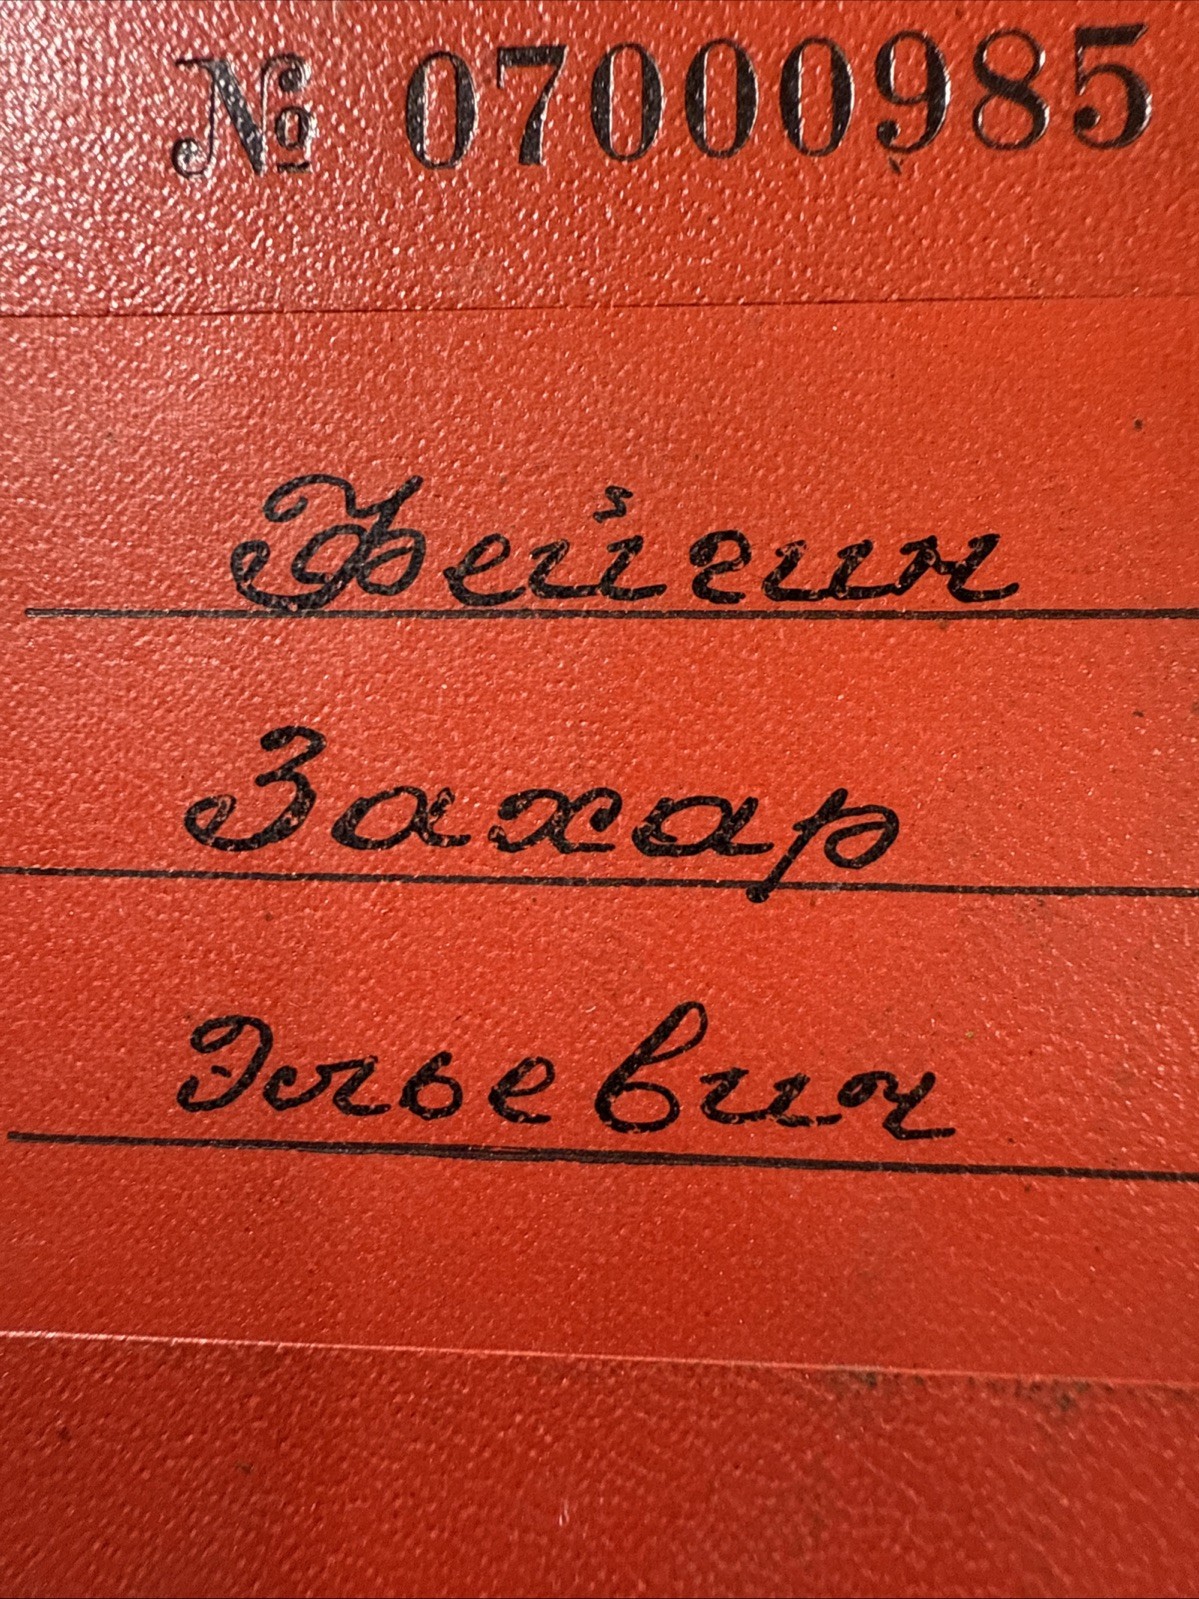 № 07000985
Фейгин
Захар
Эльевич